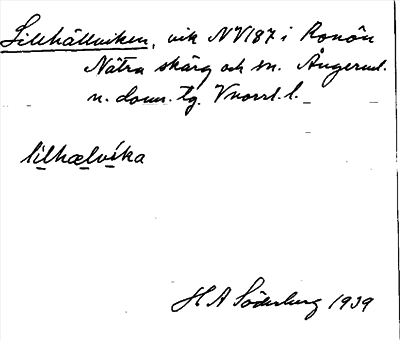 Lillhällviken, vik NV187 i Ronön
Nätra skärg och sn. Ångerml.
n. doms. tg. Vnorrl. l.
lilhælvika
H A Söderberg 1939